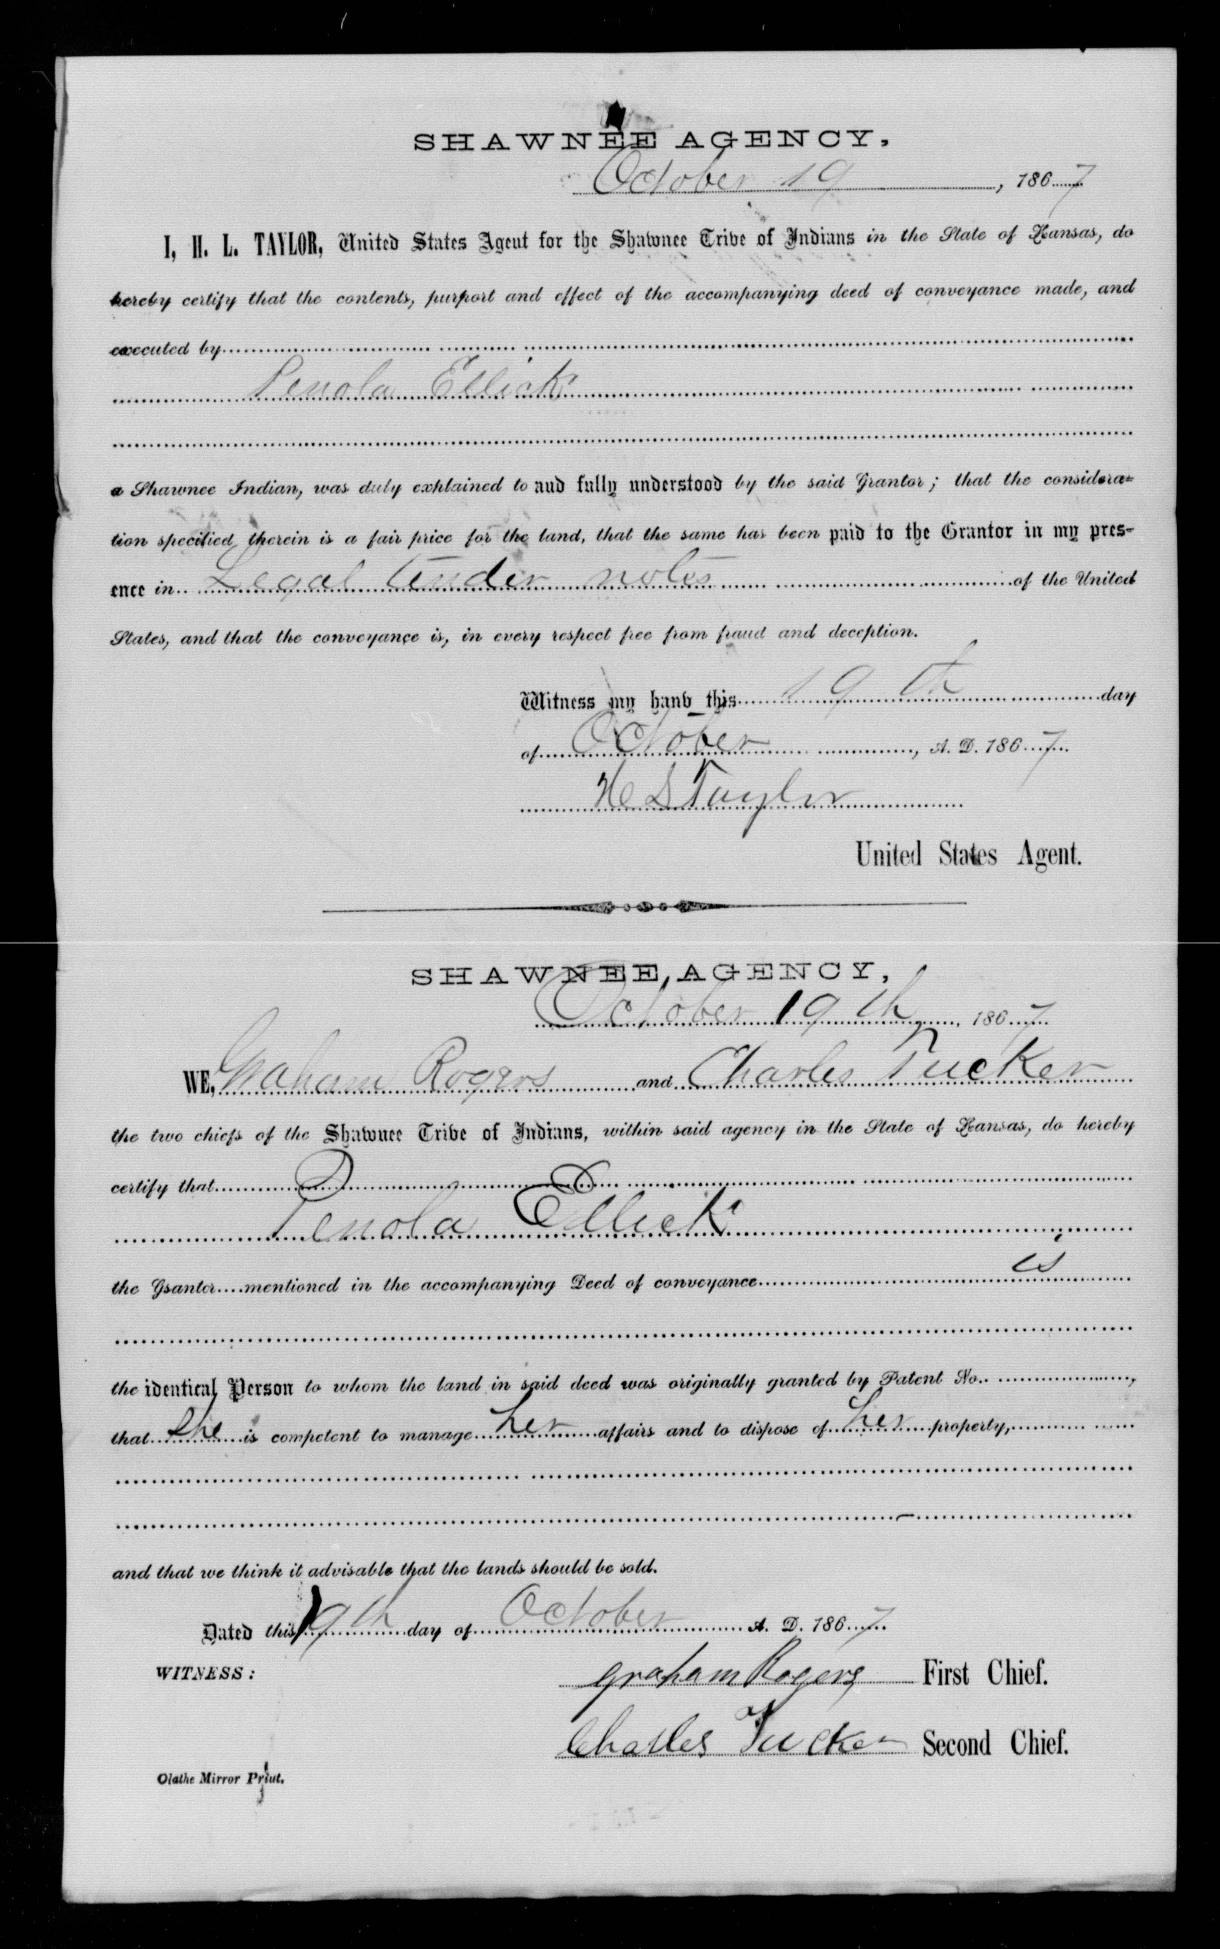 SHAWNEE AGENCY,
October 19, 1867
I, H. L. TAYLOR, United States Agent for the Shawnee Tribe of Indians in the State of Kansas, do
hereby certify that the contents, purport and effect of the accompanying deed of conveyance made, and
executed by
Penola Ellick
a Shawnee Indian, was duly explained to and fully understood by the said Grantor; that the considera-
tion specified therein is a fair price for the land, that the same has been paid to the Grantor in my pres-
ence in Legal tender notes of the United
States, and that the conveyance is, in every respect free from fraud and deception.
Witness my hand this 19th day
of October, A. D. 1867
H L Taylor
United States Agent.
SHAWNEE AGENCY,
October 19th, 1867
WE, Graham Rogers and Charles Tucker
the two chiefs of the Shawnee Tribe of Indians, within said agency in the State of Kansas, do hereby
certify that
Penola Ellick
the Grantor mentioned in the accompanying Deed of conveyance is
the identical Person to whom the land in said deed was originally granted by Patent No. ,
that she is competent to manage her affairs and to dispose of her property,
and that we think it advisable that the lands should be sold.
Dated this 19th day of October A. D. 1867
WITNESS:
graham Rogers First Chief.
Charles Tucker Second Chief.
Olathe Mirror Print.